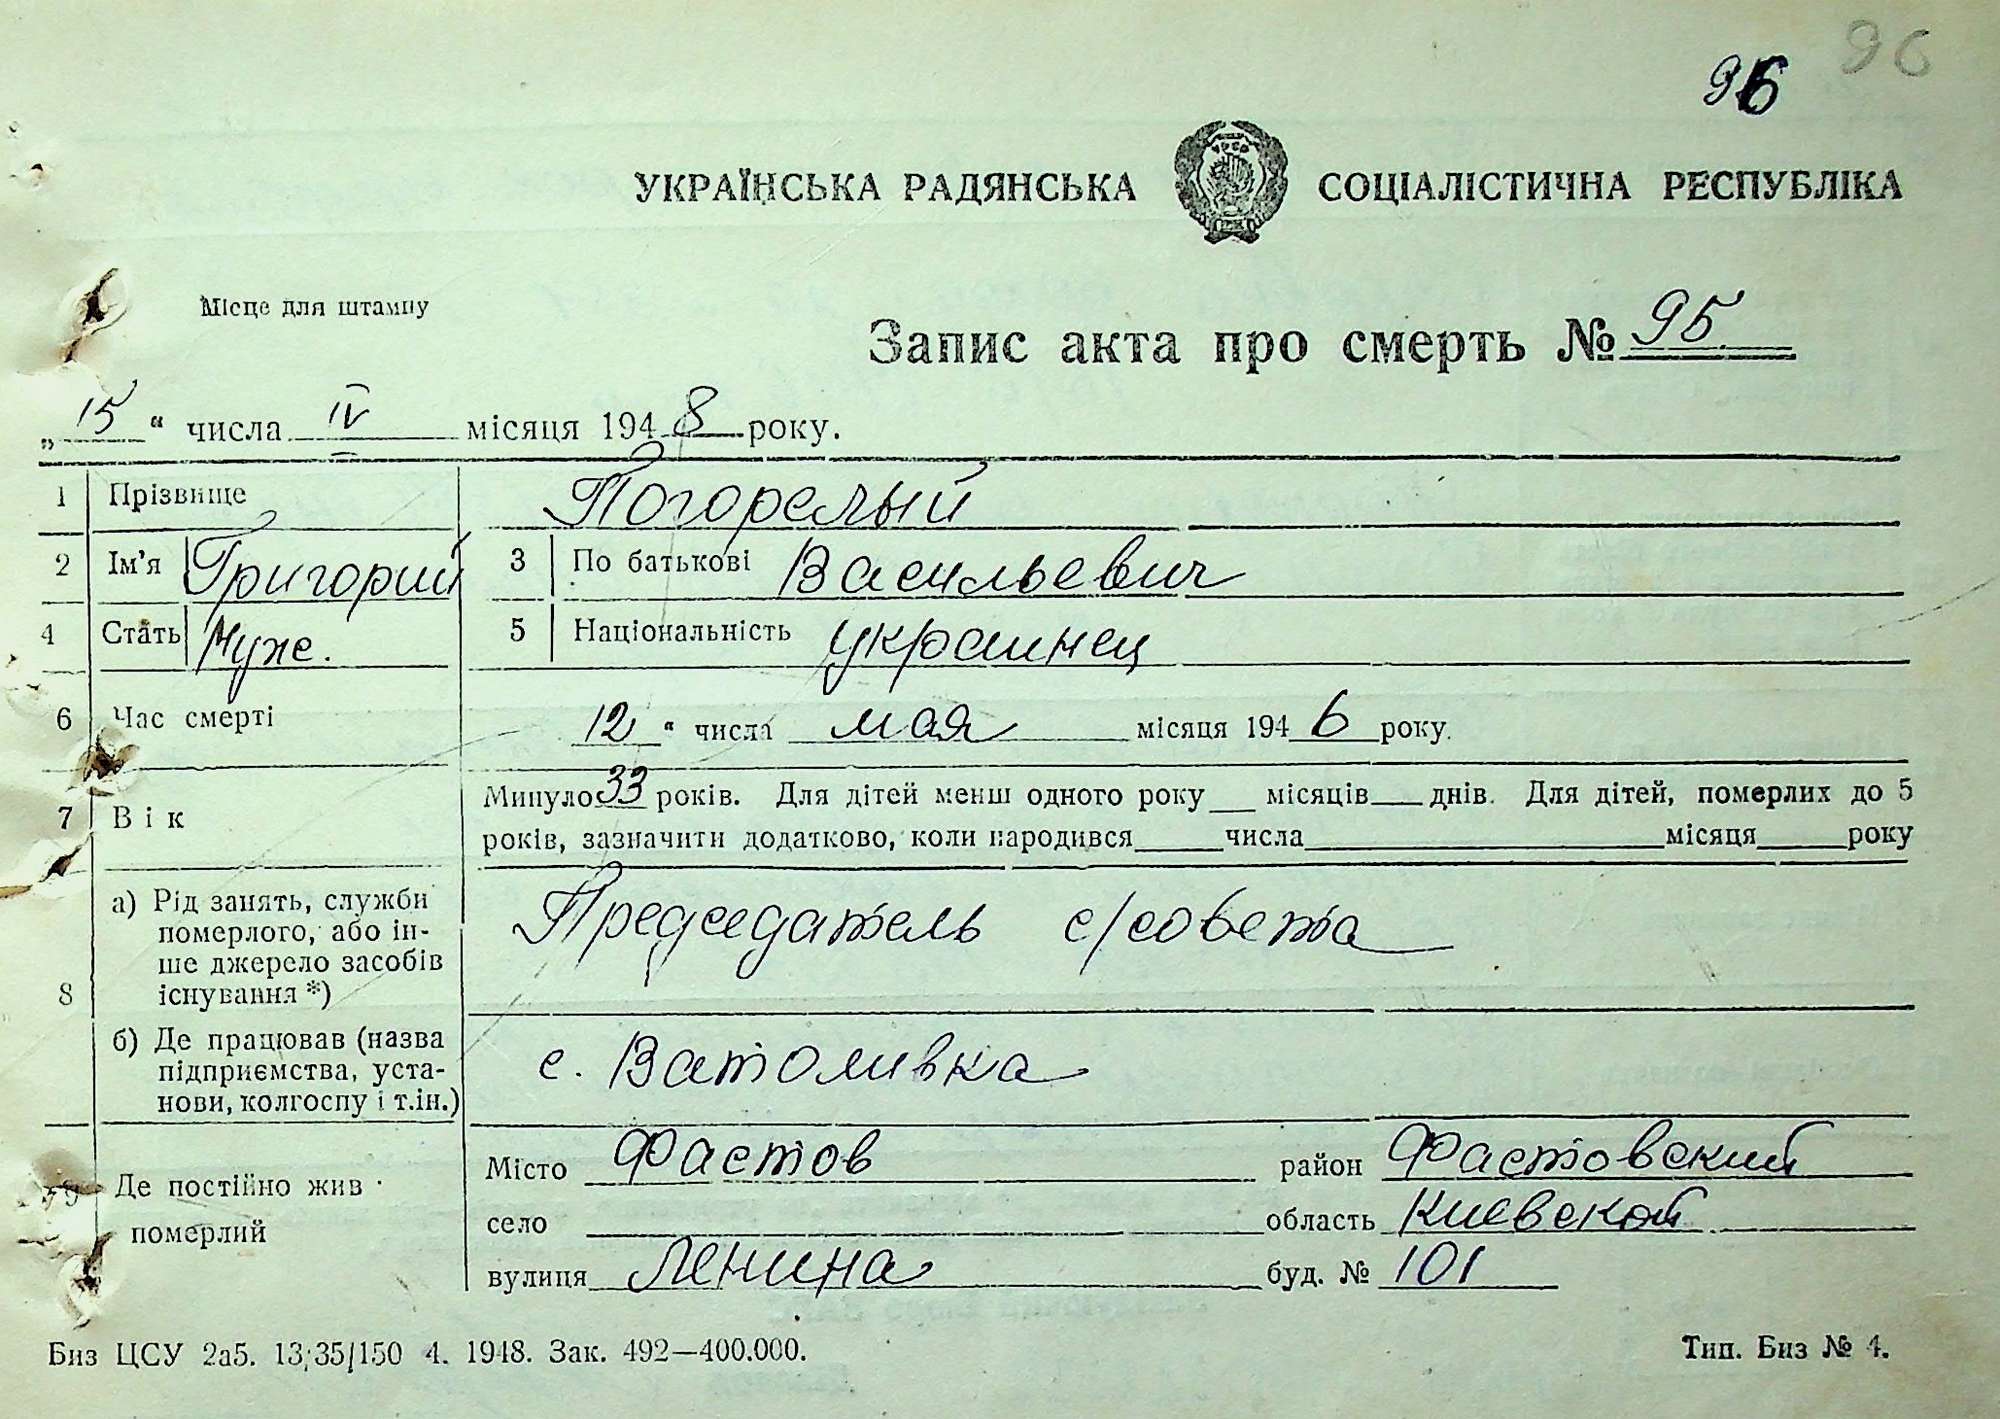 96
96
УКРАЇНСЬКА РАДЯНСЬКА СОЦІАЛІСТИЧНА РЕСПУБЛІКА
Місце для штампу
Запис акта про смерть № 95
„15“ числа IV місяця 1948 року.
1 Прізвище Погорелый
2 Ім'я Григорий 3 По батькові Васильевич
4 Стать Муж. 5 Національність украинец
6 Час смерті 12 “ числа мая місяця 1946 року.
7 Вік Минуло 33 років. Для дітей менш одного року місяців днів. Для дітей, померлих до 5
років, зазначити додатково, коли народився числа місяця року
8 а) Рід занять, служби
померлого, або ін-
ше джерело засобів
існування *) Председатель с/совета
б) Де працював (назва
підприємства, уста-
нови, колгоспу і т.ін.) с. Ватоливка
9 Де постійно жив померлий
Місто Фастов район Фастовский
село область Киевской
вулиця Ленина буд. № 101
Биз ЦСУ 2а5. 13/35/150 4. 1948. Зак. 492—400.000. Тип. Биз № 4.